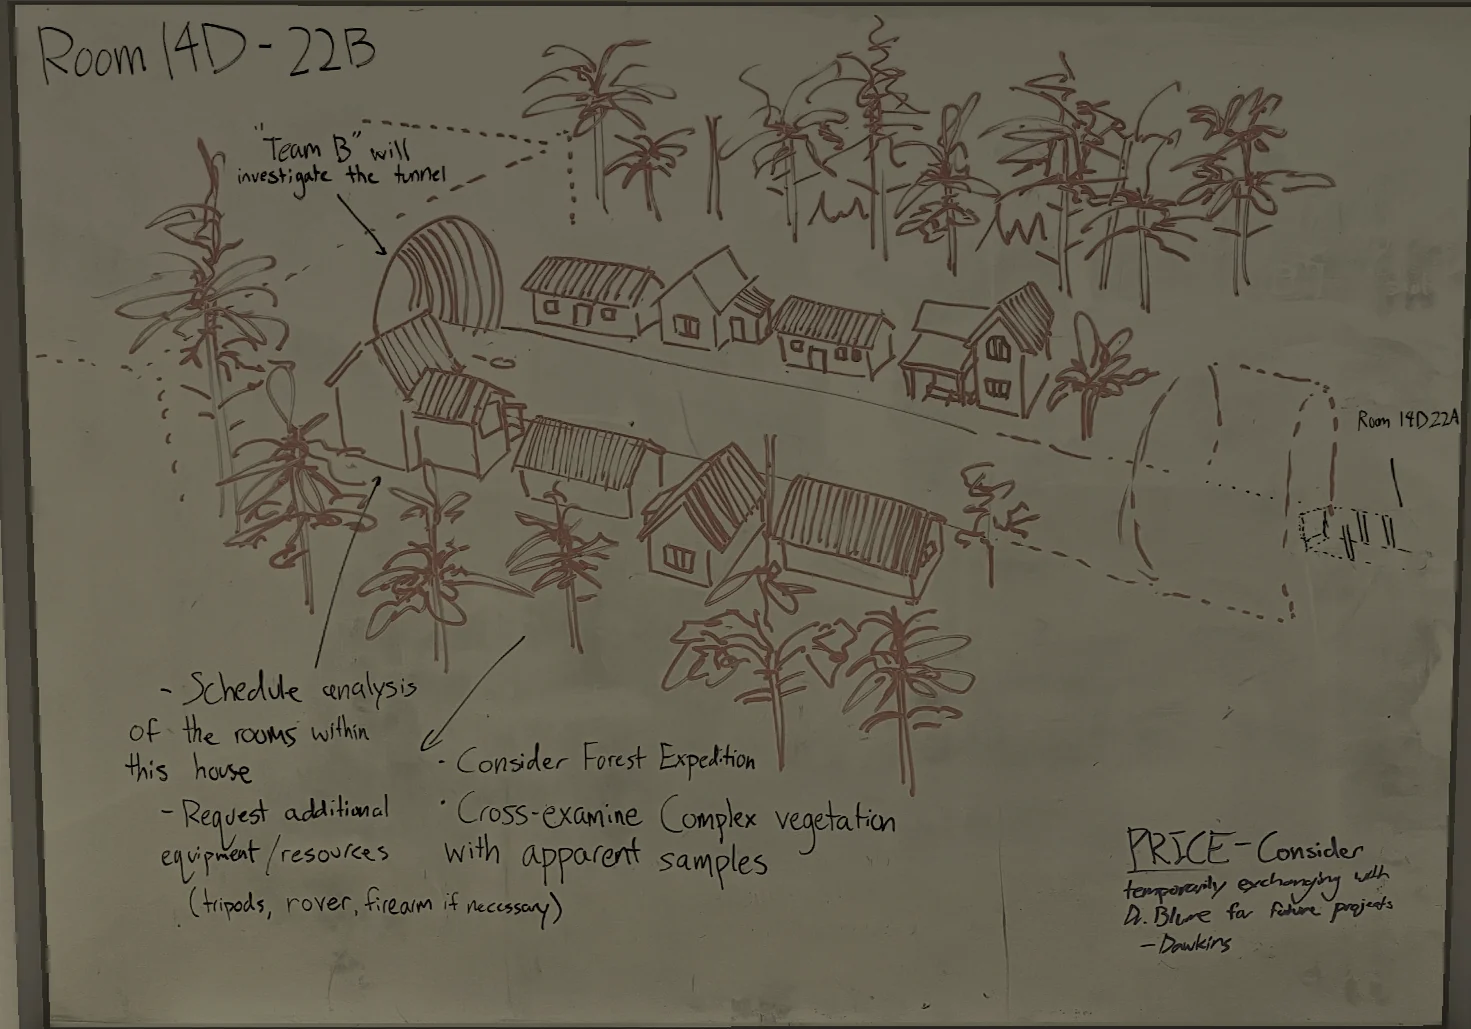 Room 14D-22B
"Team B" will
investigate the tunnel
Room 14D22A
- Schedule analysis
of the rooms within
this house
- Request additional
equipment/resources
(tripods, rover, firearm if necessary)
· Consider Forest Expedition
· Cross-examine Complex vegetation
with apparent samples
PRICE - Consider
temporarily exchanging with
Dr. Blume for future projects
- Dawkins